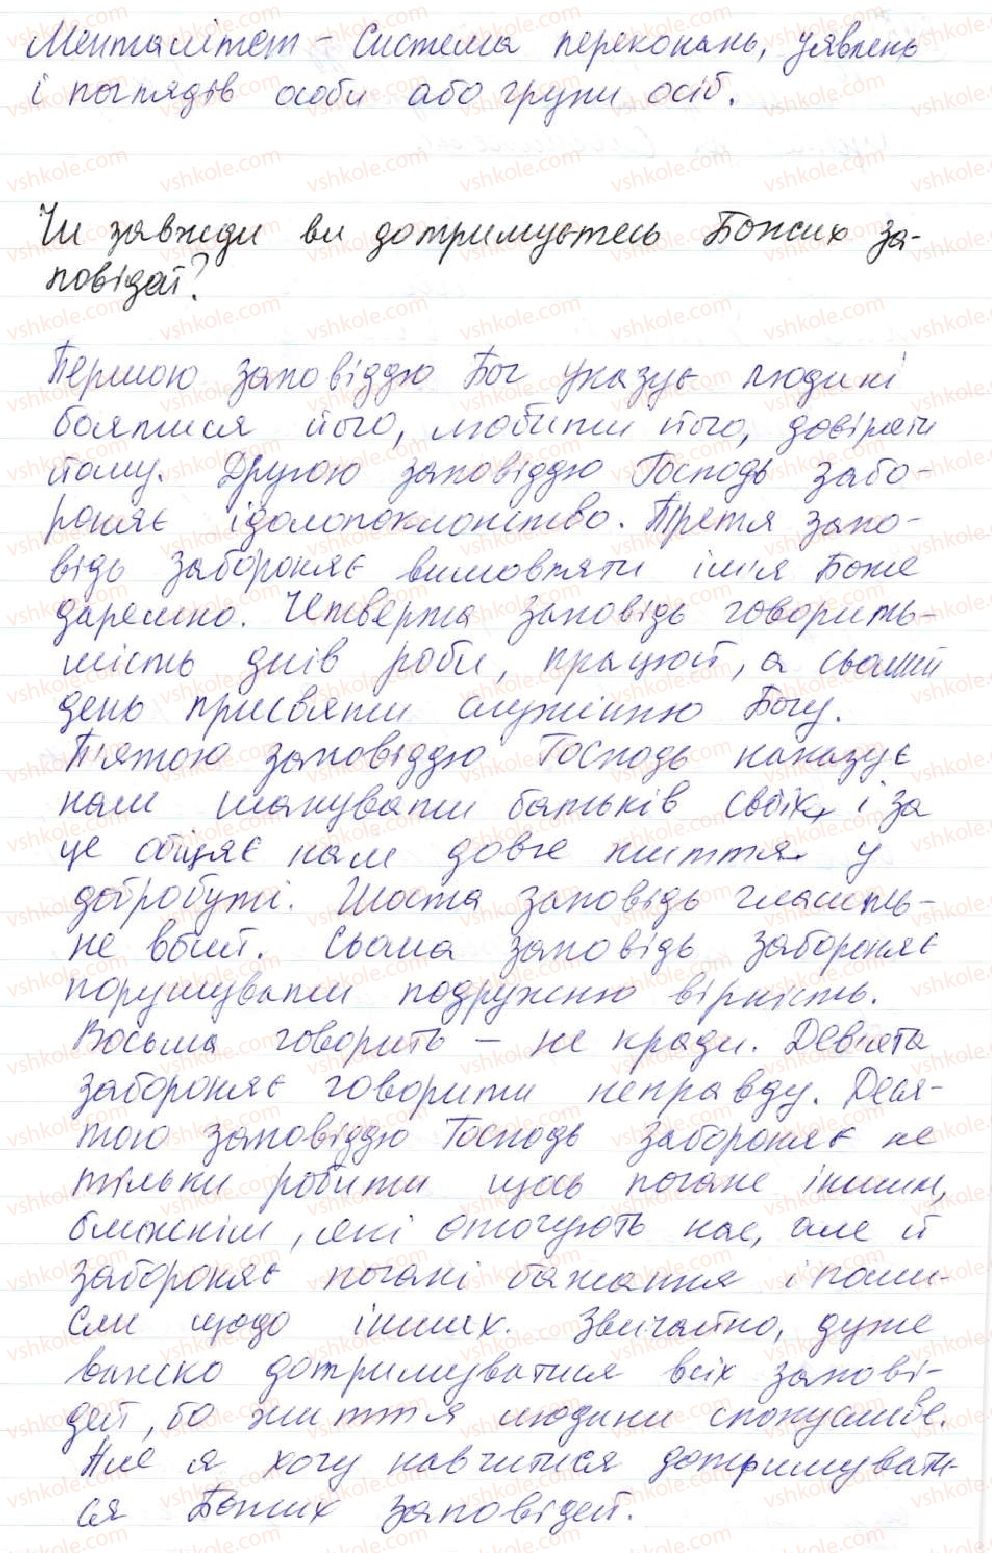 Менталітет – система переконань, уявлень
і поглядів особи або групи осіб.
Чи завжди ви дотримуєтесь Божих за-
повідей?
Першою заповіддю Бог указує людині
боятися його, любити його, довіряти
йому. Другою заповіддю Господь забо-
роняє ідолопоклонство. Третя запо-
відь забороняє вимовляти ім'я Боже
даремно. Четверта заповідь говорить-
шість днів роби, працюй, а сьомий
день присвяти служінню Богу.
П'ятою заповіддю Господь наказує
нам шанувати батьків своїх, і за
це обіцяє нам довге життя у
добробуті. Шоста заповідь гласить-
не вбий. Сьома заповідь забороняє
порушувати подружню вірність.
Восьма говорить – не кради. Дев'ята
забороняє говорити неправду. Деся-
тою заповіддю Господь забороняє не
тільки робити щось погане іншим,
ближнім, які оточують нас, але й
забороняє погані бажання і поми-
сли щодо інших. Звичайно, дуже
важко дотримуватися всіх запові-
дей, бо життя людини спокусливе.
Але я хочу навчитися дотримувати-
ся Божих заповідей.